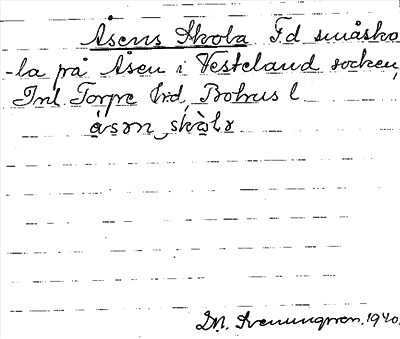 Åsens Skola Fd småsko
-la på Åsen i Vesteland socken,
Inl Torpe hrd, Bohus l
åsɷn skɷ̀lɤ
D.N. Svenungsson. 1940.